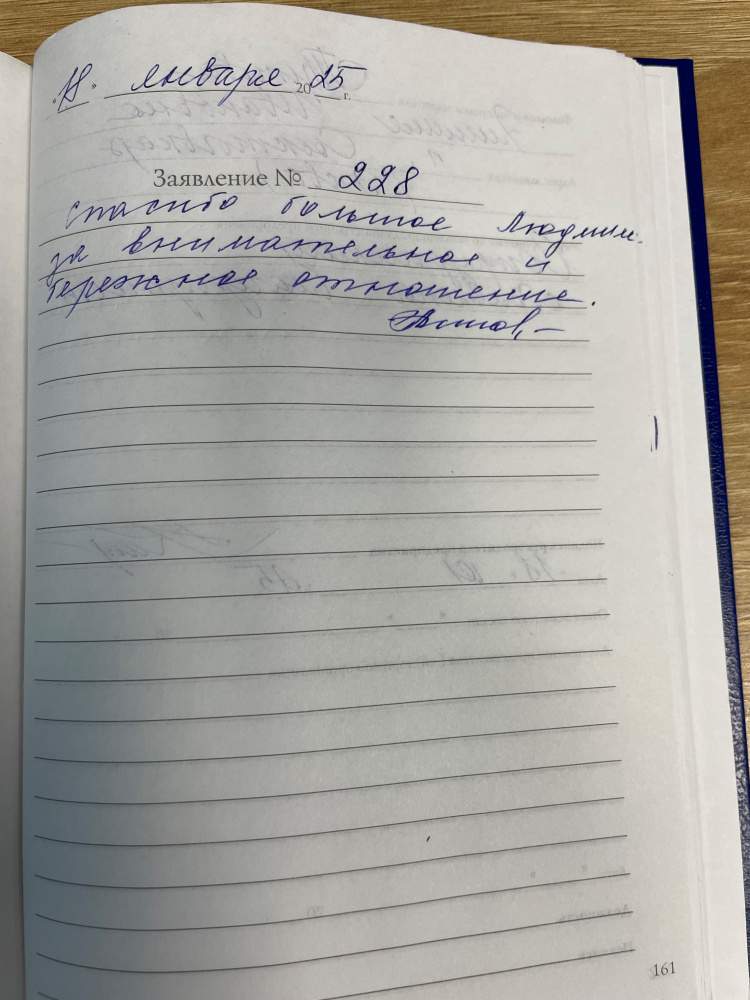 "18" января 2025 г.
Заявление № 228
Спасибо большое Людмил.
за внимательное и
бережное отношение.
161